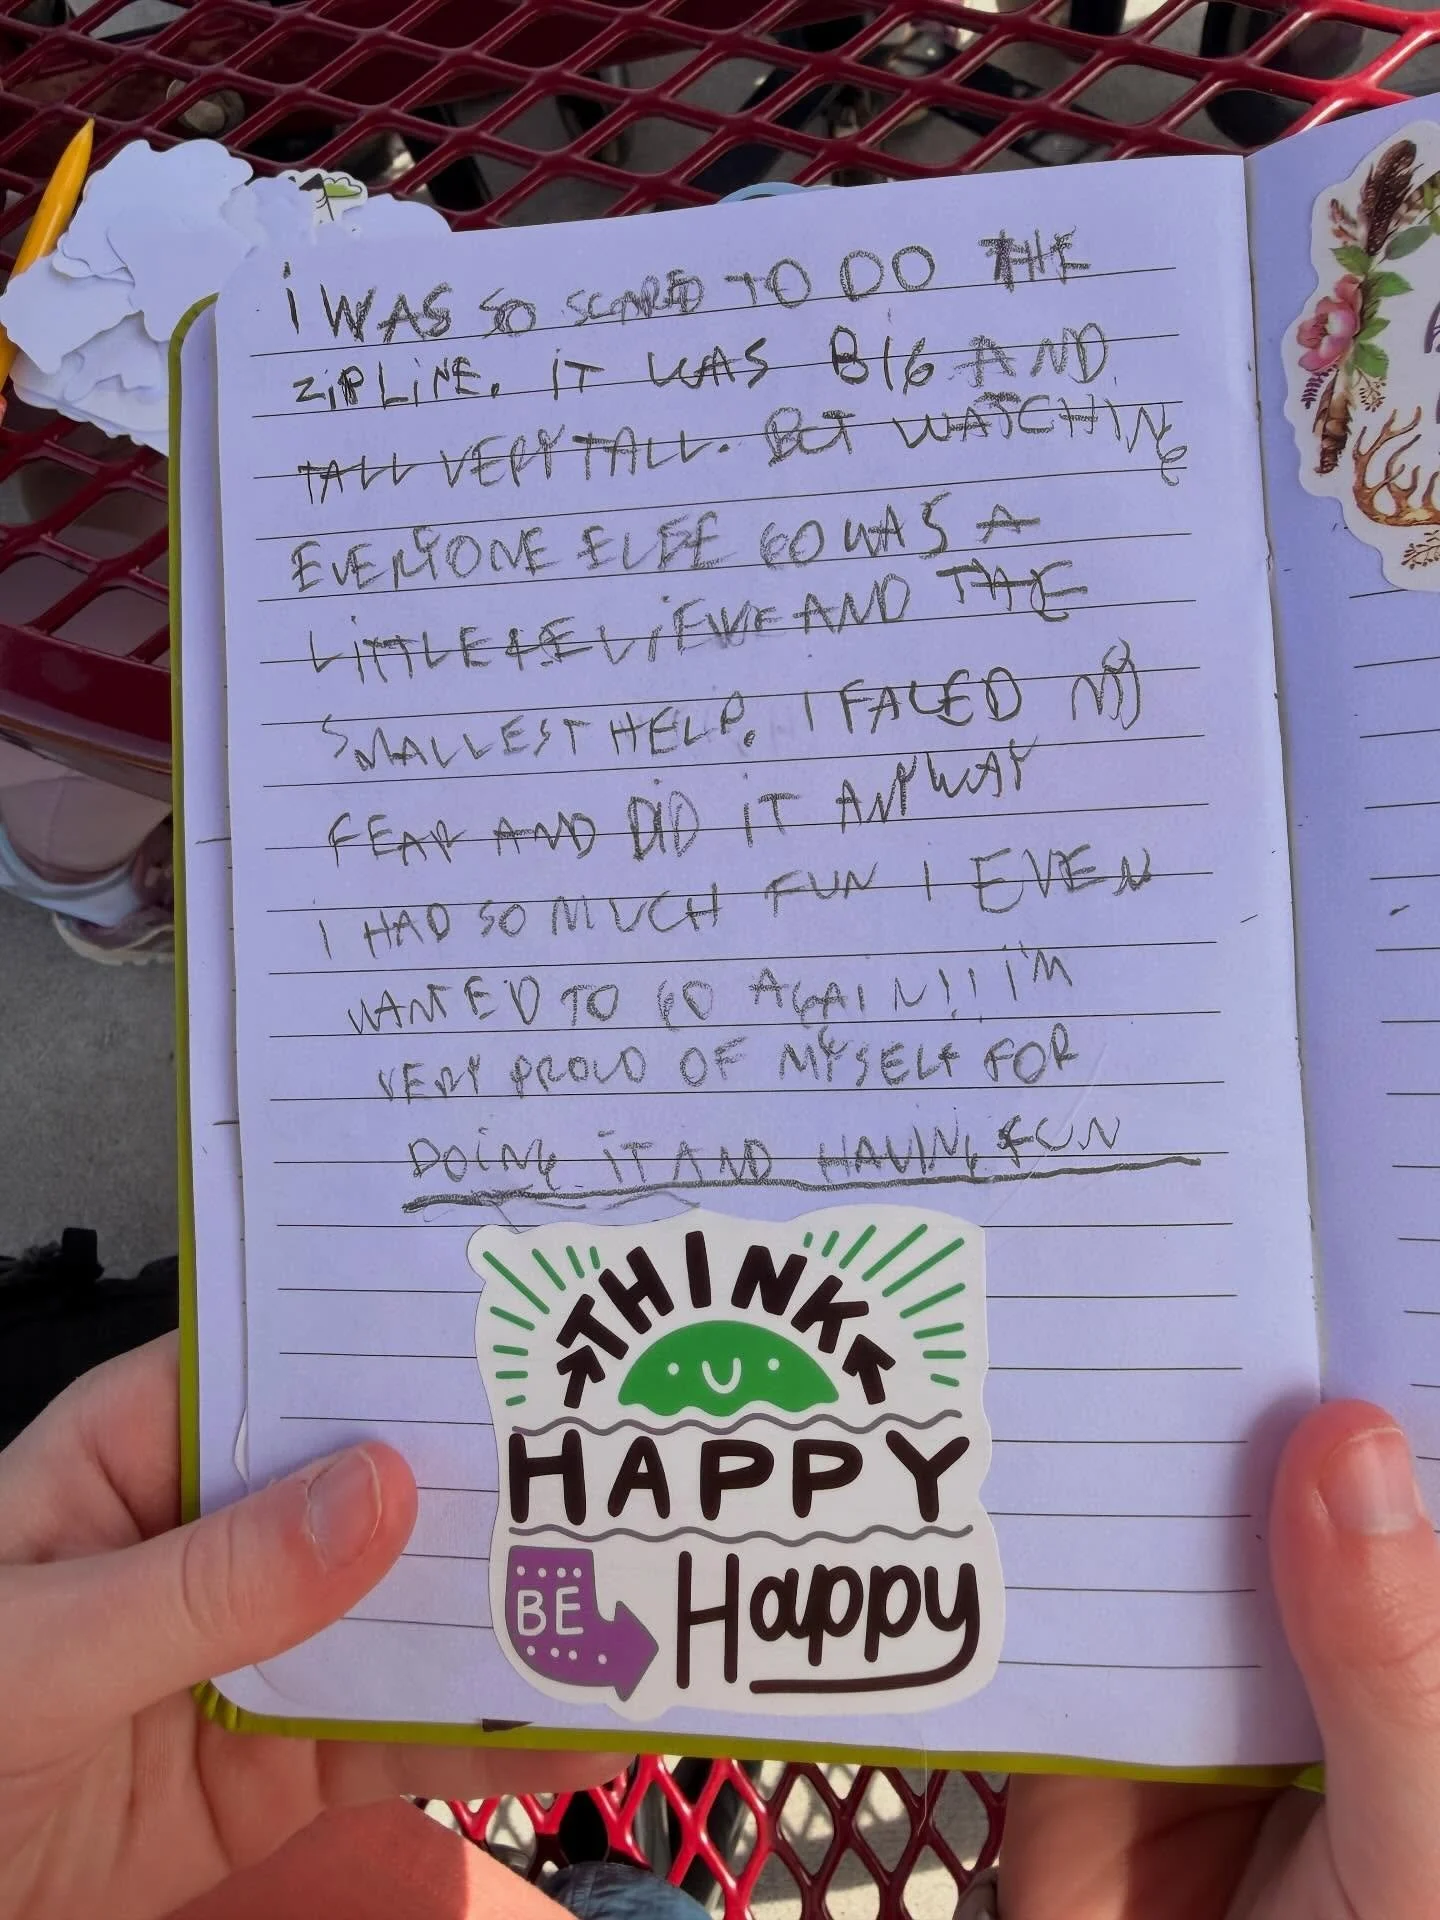 i WAS SO SCARED TO DO THE
ZiPLiNE. iT WAS BIG AND
TALL VERY TALL. BUT WATCHING
EVERYONE ELSE GO WAS A
LiTTLE RELiEVE AND THE
SMALLEST HELP. I FACED MY
FEAR AND DiD iT ANYWAY
I HAD SO MUCH FUN I EVEN
WANTED TO GO AGAIN!! I'M
VERY PROUD OF MYSELF FOR
DOiNG iT AND HAVING FUN
THINK
HAPPY
BE Happy